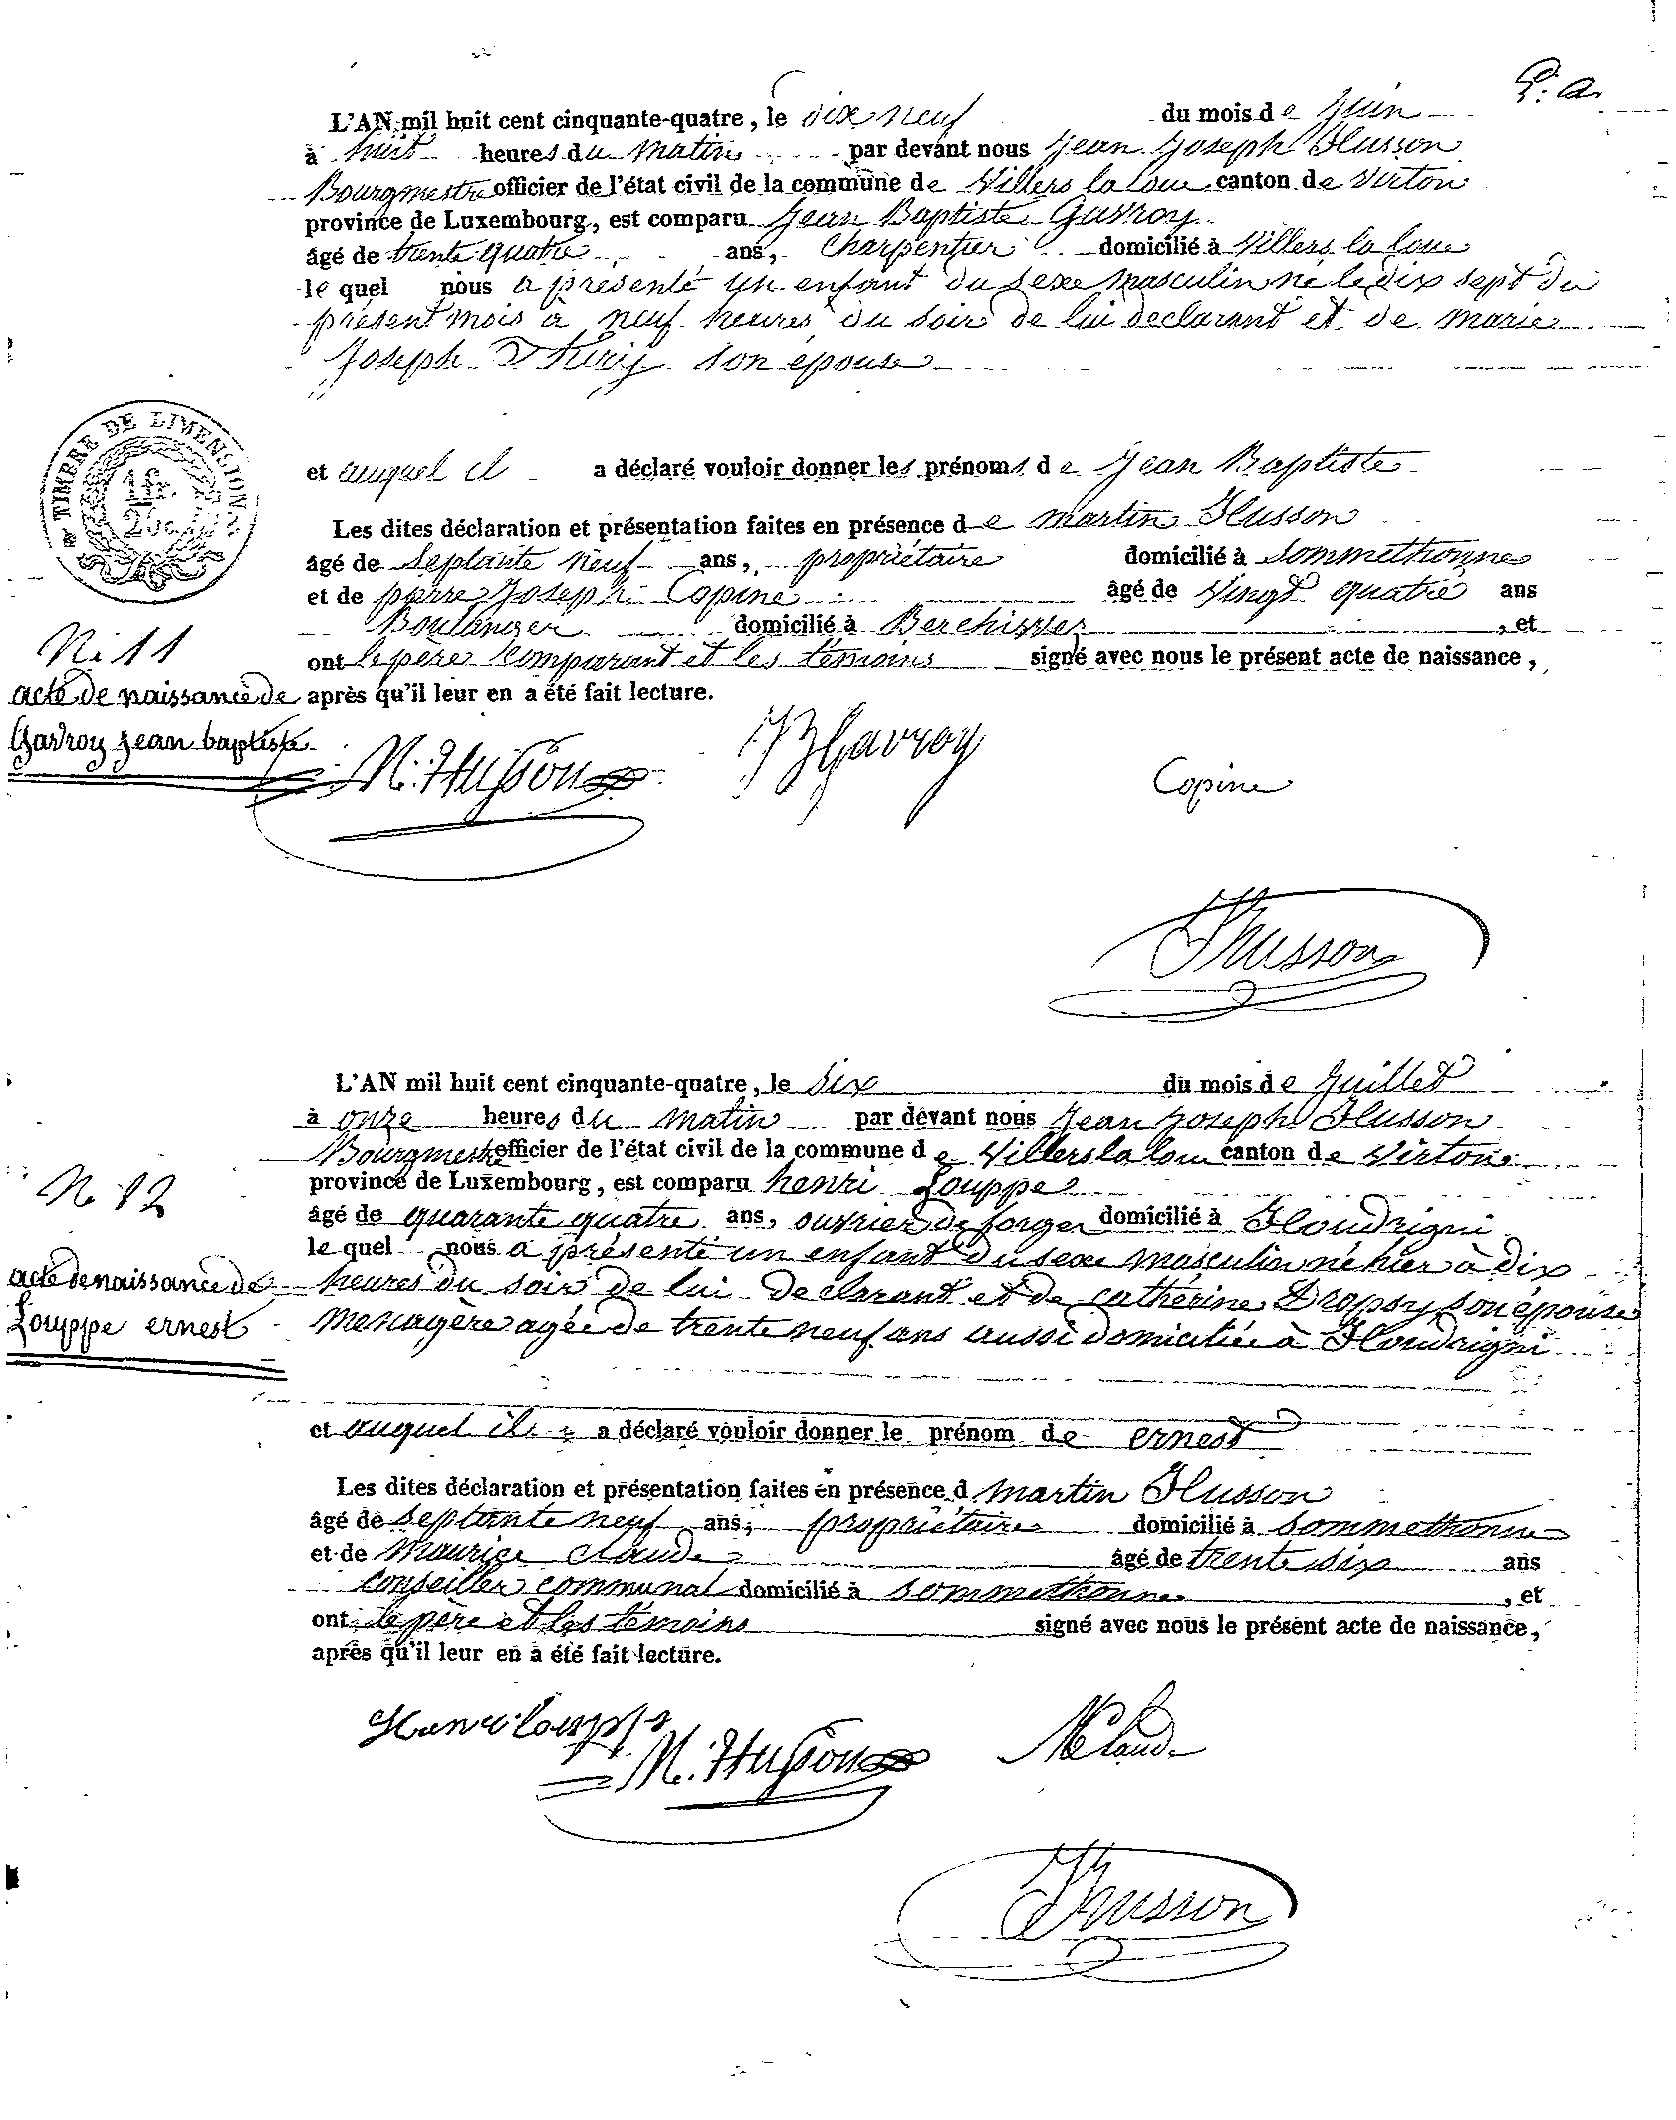 L'AN mil huit cent cinquante-quatre, le dix neuf du mois de Juin
à huit heures du matin par devant nous Jean Joseph Husson
Bourgmestre officier de l'état civil de la commune de Villers la loue canton de Virton
province de Luxembourg, est comparu Jean Baptiste Gavroy
âgé de trente quatre ans, Charpentier domicilié à Villers la loue
le quel nous a présenté un enfant du sexe masculin né le dix sept du
présent mois à neuf heures du soir de lui déclarant et de marie
Joseph Thiry son épouse
TIMBRE DE DIMENSION
1 fr.
20 c.
et auquel il a déclaré vouloir donner les prénoms de Jean Baptiste
Les dites déclaration et présentation faites en présence de martin Husson
âgé de septante neuf ans, propriétaire domicilié à Sommethonne
et de pierre Joseph Copine âgé de vingt quatre ans
Boulanger domicilié à Berchiwez, et
ont le père comparant et les témoins signé avec nous le présent acte de naissance,
après qu'il leur en a été fait lecture.
N: 11
acte de naissance de
Gavroy jean baptiste
M. Husson JB Gavroy
Copine
Husson
L'AN mil huit cent cinquante-quatre, le six du mois de Juillet
à onze heures du matin par devant nous Jean Joseph Husson
Bourgmestre officier de l'état civil de la commune de Villers la loue canton de Virton
province de Luxembourg, est comparu henri Louppe
âgé de quarante quatre ans, ouvrier de forges domicilié à Houdrigni
le quel nous a présenté un enfant du sexe masculin né hier à dix
heures du soir de lui declarant et de cathérine Dropsy son épouse
menagère agée de trente neuf ans aussi domiciliée à Houdrigni
N 12
acte de naissance de
Louppe ernest
et auquel il a déclaré vouloir donner le prénom de ernest
Les dites déclaration et présentation faites en présence d martin Husson
âgé de septante neuf ans, propriétaire domicilié à Sommethonne
et de maurice claude âgé de trente six ans
conseiller communal domicilié à sommethonne, et
ont le père et les témoins signé avec nous le présent acte de naissance,
après qu'il leur en a été fait lecture.
Henri louppe
M. Husson
M Claude
Husson